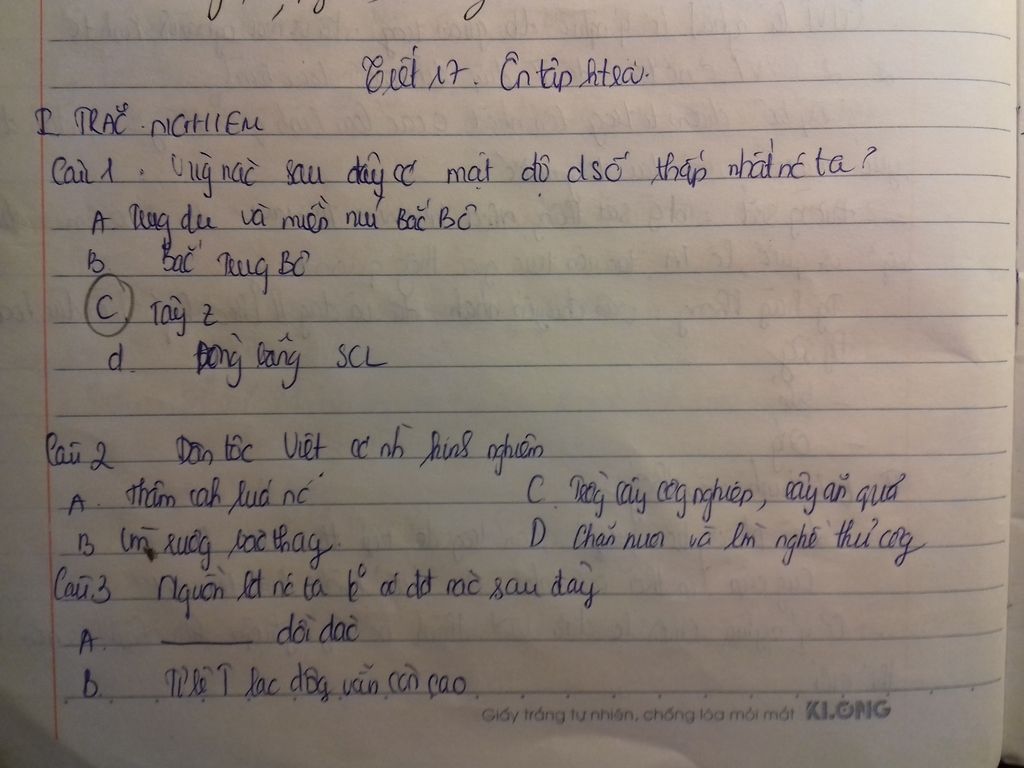 Tiết 17. Ôn tập htra.
I TRẮC NGHIEM
Câu 1. Vùg nào sau đây có mật độ dsố thấp nhất nc ta?
A. Trug du và miền núi Bắc Bộ.
B Bắc Trug Bộ
C, Tây
d. Đồng bằng SCL
Câu 2 Dân tộc Việt có nh kinh nghiệm
A. thâm cah luá nc
C. Trồg cây côg nghiệp, cây ăn quả
B Lm ruộg bậc thag
D Chăn nuôi và lm nghề thủ côg
Câu 3 Nguồn lđ nc ta có đđ nào sau đây
A. dồi dào
B. Tỉ lệ lao độg vẫn còn cao
Giấy trắng tự nhiên, chống lóa mỏi mắt KLONG